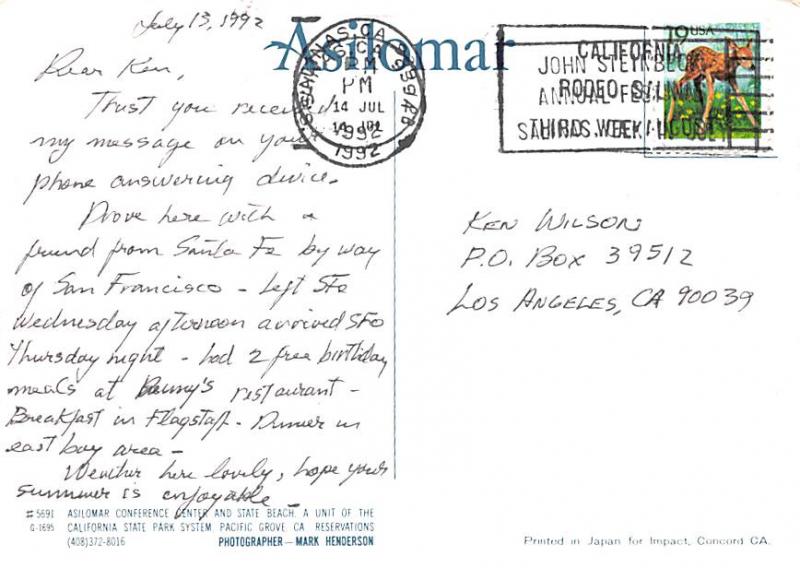 July 13, 1992
Asilomar
Dear Ken,
Trust you received
my message on your
phone answering divice.
Drove here with a
friend from Santa Fe by way
of San Francisco - Left SFe
Wednesday afternoon arrived SFo
Thursday night - had 2 free birthday
meals at Denny's restaurant -
Breakfast in Flagstaff - Dinner in
east bay area -
Weather here lovely, hope your
summer is enjoyable -
SALINAS, CA
PM
14 JUL
1992
19 USA
CALIFORNIA
RODEO SALINAS
THIRD WEEK JULY
JOHN STEINBECK
ANNUAL FESTIVAL
SALINAS AUGUST
KEN WILSON
P.O. BOX 39512
LOS ANGELES, CA 90039
#5691 ASILOMAR CONFERENCE CENTER AND STATE BEACH. A UNIT OF THE
G-1695 CALIFORNIA STATE PARK SYSTEM, PACIFIC GROVE, CA. RESERVATIONS
(408)372-8016 PHOTOGRAPHER — MARK HENDERSON
Printed in Japan for Impact, Concord CA.